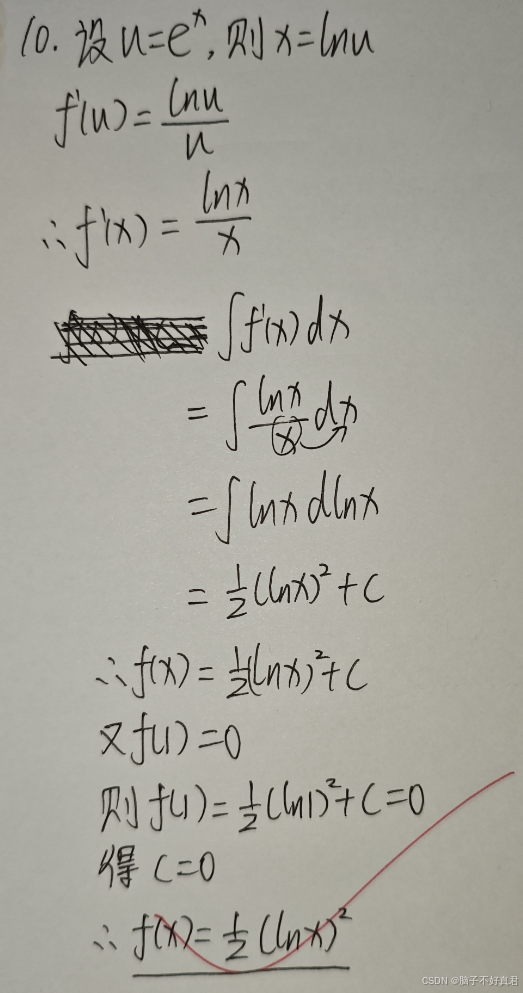 10. 设 u=eˣ, 则 x=lnu
f'(u)=lnu/u
∴f'(x)=lnx/x
∫f'(x)dx
=∫lnx/x dx
=∫lnx dlnx
=1/2(lnx)²+C
∴f(x)=1/2(lnx)²+C
又f(1)=0
则f(1)=1/2(ln1)²+C=0
得 C=0
∴f(x)=1/2(lnx)²
CSDN @脑子不好真君